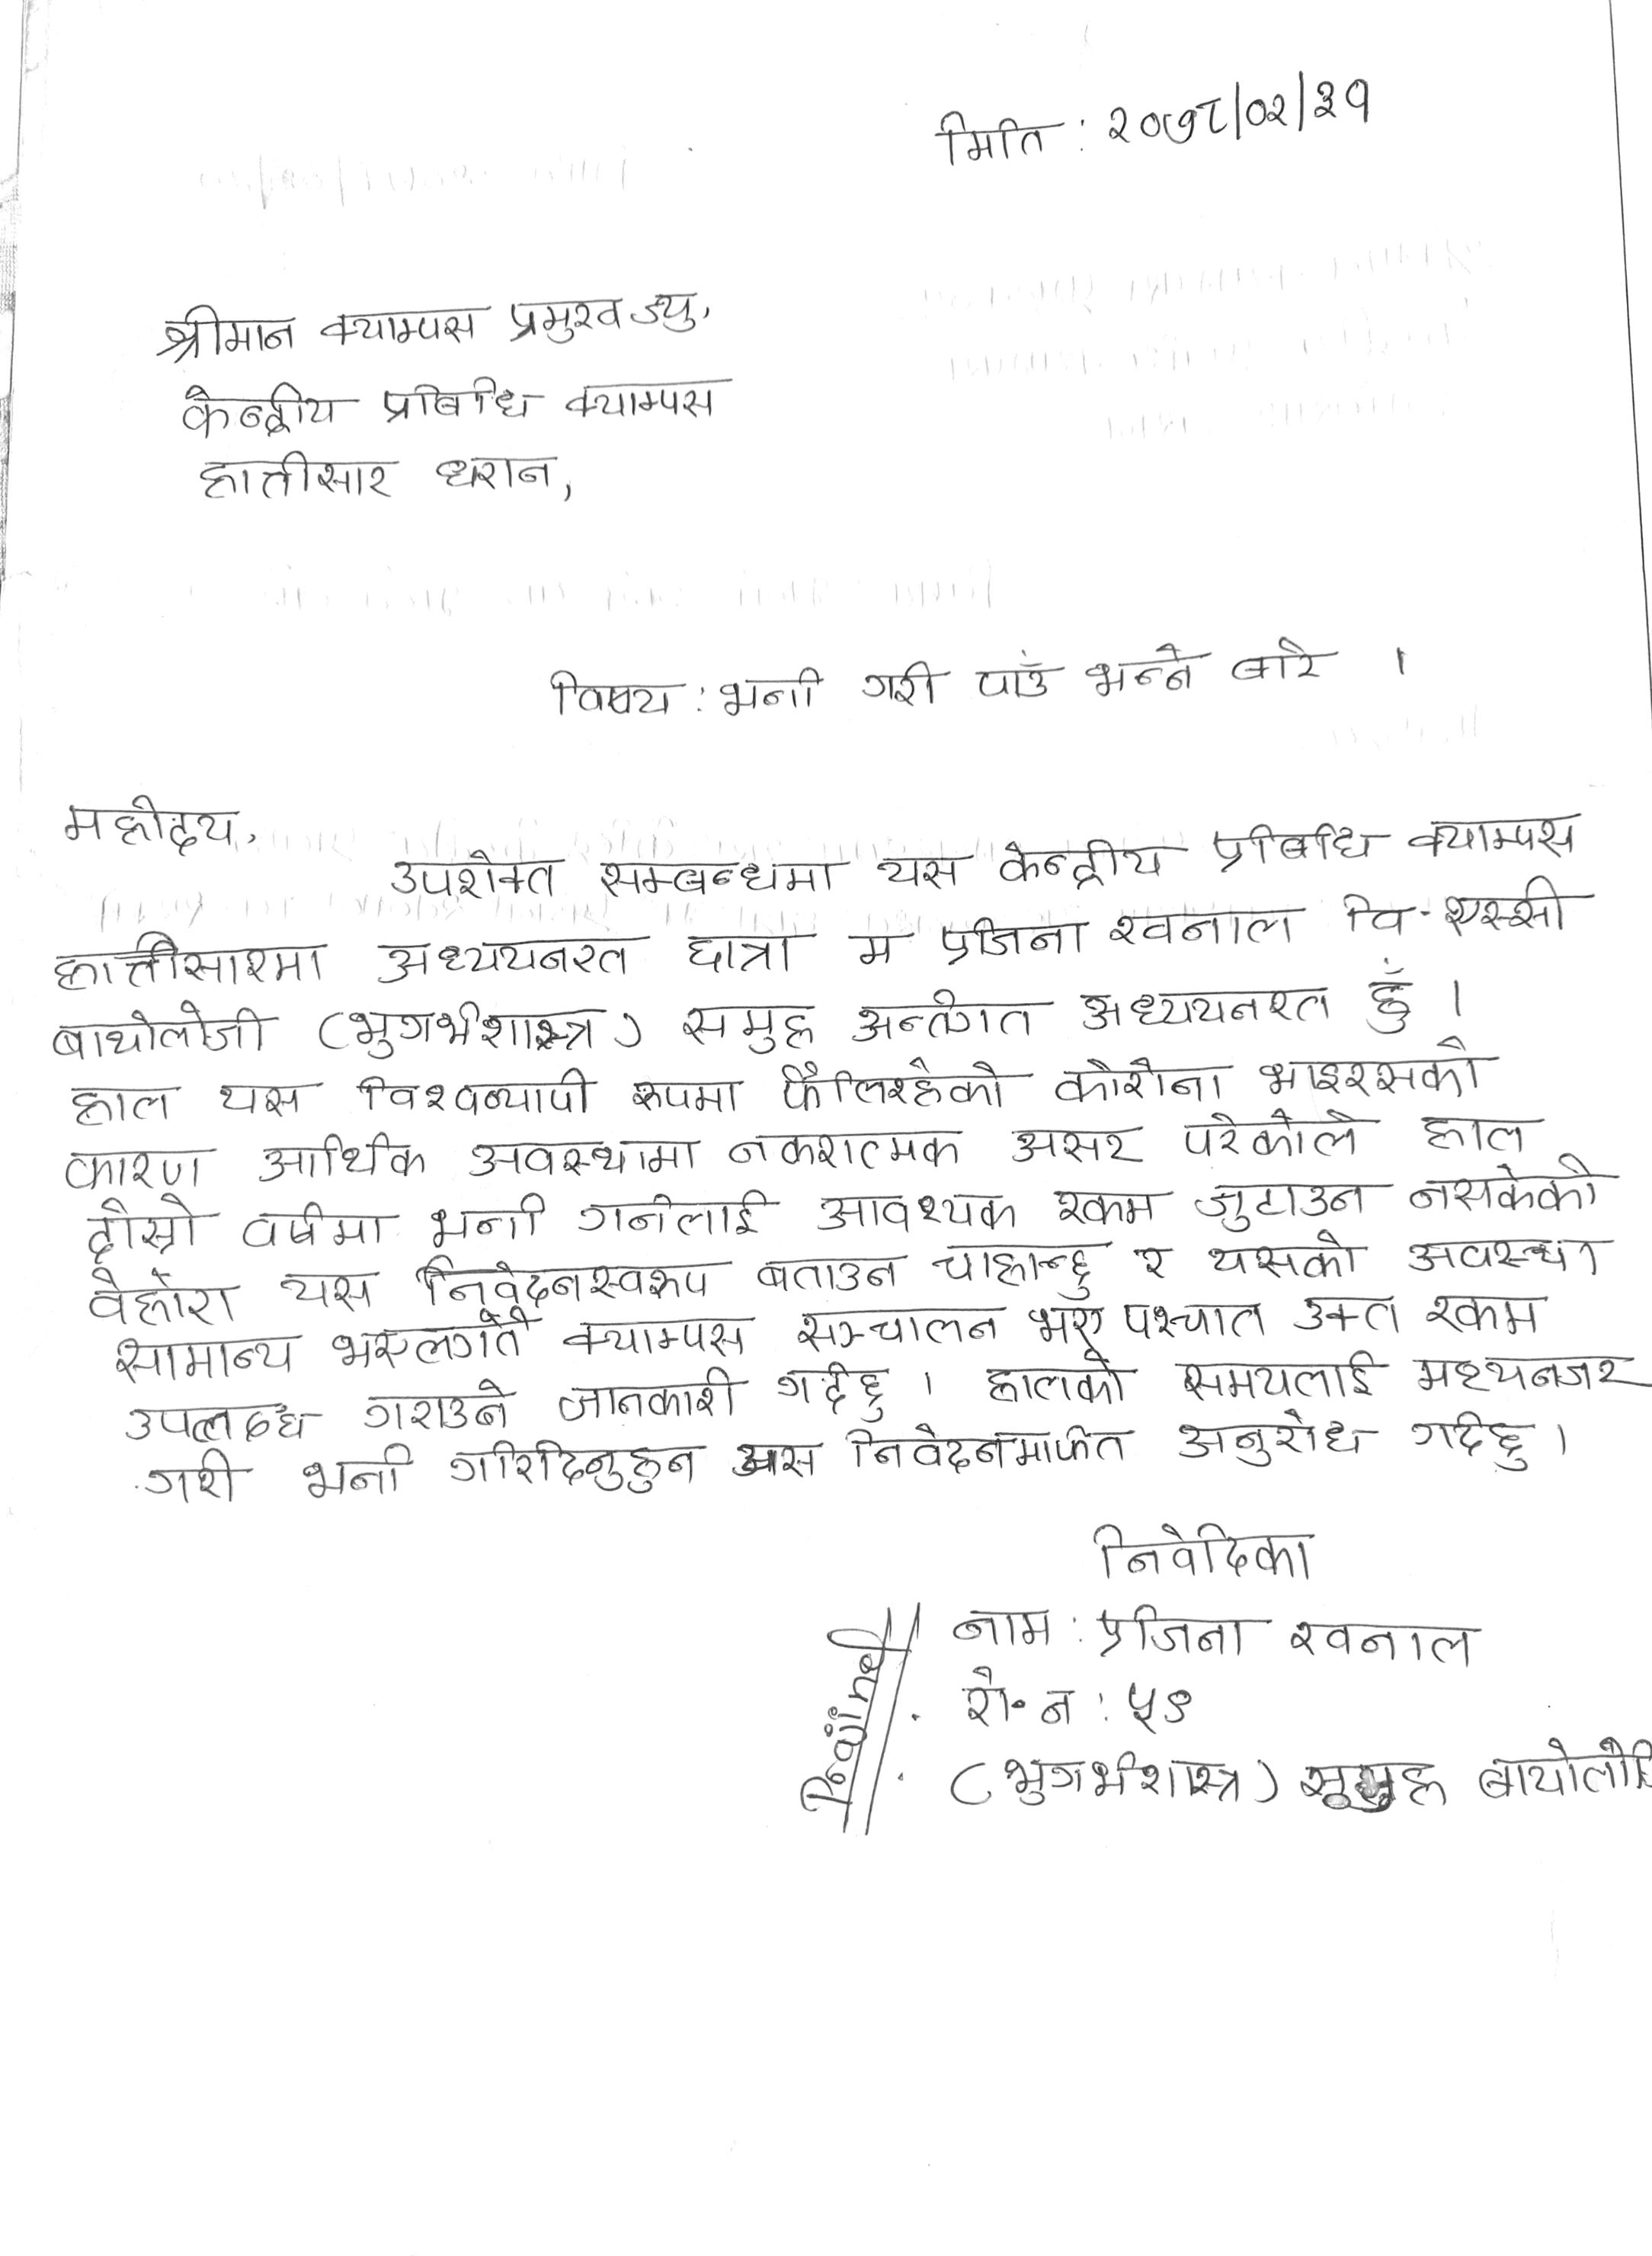 मिति : २०७८/०२/३१
श्रीमान क्याम्पस प्रमुख ज्यु,
केन्द्रीय प्रबिधि क्याम्पस
हात्तीसार धरान,
विषय : भर्ना गरी पाउँ भन्ने बारे ।
महोदय,
उपरोक्त सम्बन्धमा यस केन्द्रीय प्रबिधि क्याम्पस
हात्तीसारमा अध्ययनरत छात्रा म प्रजिना खनाल वि. एस्सी
बायोलोजी (भुगर्भशास्त्र) समुह अन्तर्गत अध्ययनरत हुँ ।
हाल यस विश्वव्यापी रुपमा फैलिरहेको कोरोना भाइरसको
कारण आर्थिक अवस्थामा नकरात्मक असर परेकोले हाल
दोस्रो वर्षमा भर्ना गर्नलाई आवश्यक रकम जुटाउन नसकेको
वेहोरा यस निवेदनस्वरुप बताउन चाहान्छु र यसको अवस्था
सामान्य भएलगत्तै क्याम्पस सञ्चालन भए पश्चात उक्त रकम
उपलब्ध गराउने जानकारी गर्दछु । हालको समयलाई मध्यनजर
गरी भर्ना गरिदिनुहुन यस निवेदनमार्फत अनुरोध गर्दछु ।
निवेदिका
नाम : प्रजिना खनाल
रो. न : ५९
(भुगर्भशास्त्र) समुह बायोलोजि